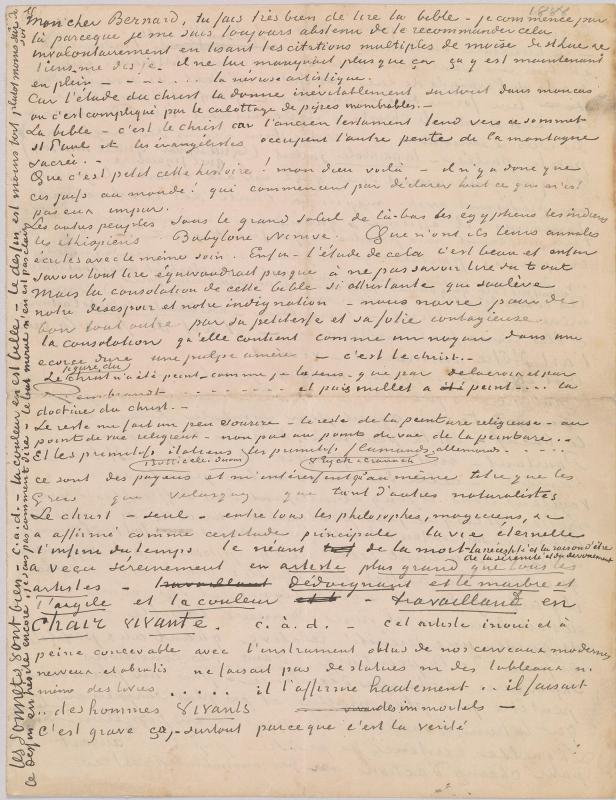 1888
mon cher Bernard, tu fais très bien de lire la bible – je commence par
là parceque je me suis toujours abstenu de te recommander cela
involontairement en lisant tes citations multiples de moïse de st Luc &c
tiens me dis je – il ne lui manquait plus que ça. ça y est maintenant
en plein – – . . . . la névrose artistique.
Car l'étude du christ la donne inévitablement surtout dans mon cas
où c'est compliqué par le culottage de pipes innombrables. –
La bible – c'est le christ car l'ancien testament tend vers ce sommet
st Paul et les évangélistes occupent l'autre pente de la montagne
sacrée. –
Que c'est petit cette histoire! mon dieu voilà – il n'y a donc que
ces juifs au monde! qui commencent par déclarer tout ce que n'est
pas eux impur.
Les autres peuples sous le grand soleil de là-bas les égyptiens les indiens
les éthiopiens Babylone Ninive. Que n'ont ils leurs annales
écrites avec le même soin. Enfin l'étude de cela c'est beau et enfin
savoir tout lire équivaudrait presque à ne pas savoir lire du tout
Mais la consolation de cette bible si attristante qui soulève
notre désespoir et notre indignation – nous navre pour de
bon tout outré par sa petitesse et sa folie contagieuse
la consolation qu'elle contient comme un noyau dans une
ecorce dure une pulpe amère – c'est le christ..
figure du
Le Christ n'a été peint – comme je le sens – que par delacroix et par
Rembrandt . . . . . . . et puis millet a peint . . . . la
doctrine du christ. –
Le reste me fait un peu sourire – le reste de la peinture religieuse – au
point de vue religieux – non pas au point de vue de la peinture. .
et les primitifs italiens les primitifs flamands, allemands . . . .
Botticelli disons V Eyck – Cranach
ce sont des payens et m'intéressent qu'au même titre que les
Grecs que Velasquez que tant d'autres naturalistes
Le christ – seul – entre tous les philosophes, magiciens, &c
a affirmé comme certitude principale la vie éternelle
l'infini du temps le néant de la mort – la nécessité et la raison d'être
de la sérénité et du dévouement
a vécu sereinement en artiste plus grand que tous les
artistes – dédaignant et le marbre et
l'argile et la couleur – travaillant en
Chair vivante. c.à.d. – cet artiste inouï et à
peine concevable avec l'instrument obtus de nos cerveaux modernes
nerveux et abrutis ne faisait pas de statues ni des tableaux ni
même des livres . . . . . il l'affirme hautement . . il faisait
. . des hommes vivants des immortels –
C'est grave ça, – surtout parceque c'est la vérité
les sonnets sont bien – c.a.d. – la couleur en est belle – le dessin est moins fort plutot moins sûr
ce dessin en hésite encore, je sais pas comment dire – le but moral n'en est pas clair